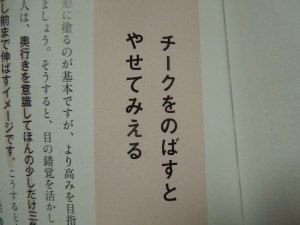 チークをのばすと
やせてみえる
形に塗るのが基本ですが、より高みを目指
ましょう。そうすると、目の錯覚が活かし
人は、奥行きを意識してほんの少しだけ三角
し前まで伸ばすイメージです。こうすると